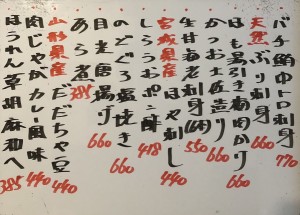 バチ鮪中トロ刺身 770
天然ぶり刺身 660
はも湯引き梅肉かけ 660
かつお土佐造り
生甘海老刺身(5本) 550
宮城県産ほや刺し 660
しらうおポン酢 418
のどぐろ塩焼き 660
目光唐揚 660
あら煮 385
山形県産だだちゃ豆 440
肉じゃがカレー風味 440
ほうれん草胡麻和へ 385